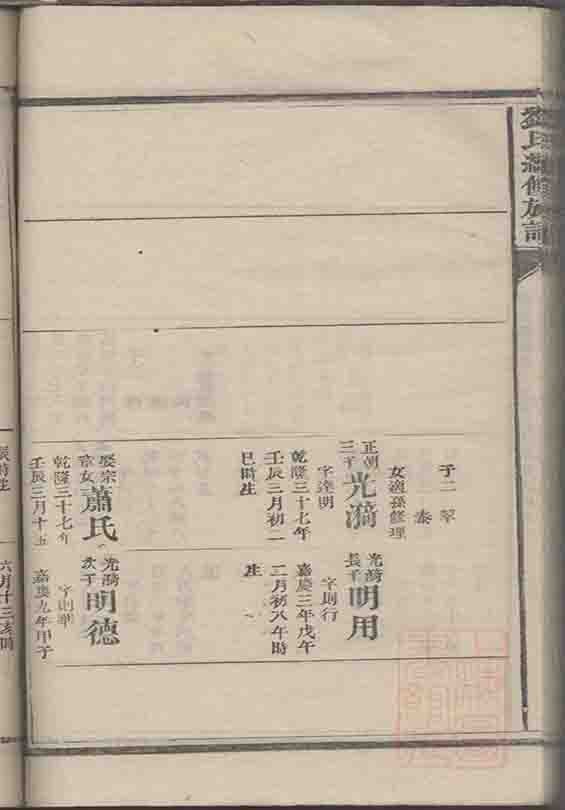 劉氏續修族譜
子二 翠
泰
女適孫修理
正朝三子 光漪
字達明
乾隆三十七年
壬辰二月初一
巳時生
娶宗
章女 蕭氏
乾隆三十七年
壬辰三月十五
光漪長子 明用
字則行
嘉慶三年戊午
二月初八午時
生
光漪次子 明德
字則華
嘉慶九年甲子
辰時生
六月十三亥時